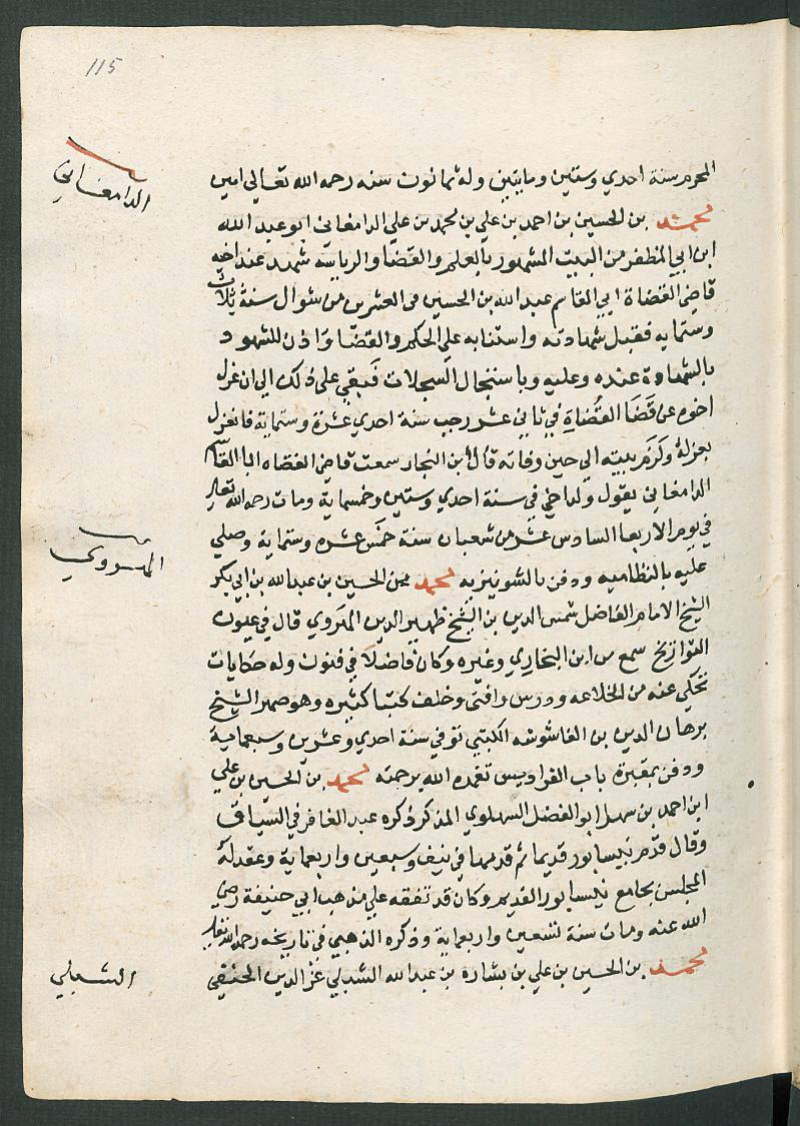 115
المحرم سنة احدي وستين ومايتين وله ثمانون سنه رحمه الله تعالي امين
الدامغاني
محمد بن الحسين بن احمد بن علي بن محمد بن علي الدامغاني ابو عبد الله
ابن ابي المظفر من البيت المشهور بالعلم والقضا والرياسه شهد عند اخيه
قاضي القضاة ابي القاسم عبد الله بن الحسين في العشرين من شوال سنة ثلاث
وستمايه فقبل شهادته واستنابه علي الحكم والقضا واذن للشهود
بالشهادة عنده وعليه وباسنجال السجلات فبقي علي ذلك الي ان عزل
اخوه عن قضا القضاة في ثاني عشر رجب سنة احدي عشرة وستماية فانعزل
بعزله ولزم بيته الي حين وفاته قال ابن النجار سمعت قاضي القضاه ابا القاسم
الدامغاني يقول ولد اخي في سنة احدي وستين وخمسماية ومات رحمه الله تعالي
في يوم الاربعا السادس عشر من شعبان سنة خمس عشره وستماية وصلي
المهروي
عليه بالنظاميه ودفن بالشونيزيه محمد بن الحسين بن عبد الله بن ابي بكر
الشيخ الامام الفاضل شمس الدين بن الشيخ ظهير الدين الهروي قال في عيون
التواريخ سمع من ابن البخاري وغيره وكان فاضلا في فنون وله حكايات
تحكي عنه من الخلاعه ودرس وافتي وخلف كتبا كثيره وهو صهر الشيخ
برهان الدين بن الفاشوشه الكبتي توفي سنة احدي وعشرين وسبعماية
ودفن بمقبرة باب الفراديس تغمده الله برحمته محمد بن الحسين بن علي
ابن احمد بن سهل ابو الفضل السهلوي المذكر ذكره عبد الغافر في السياق
وقال قدم نيسابور قديما ثم قدمها في نيف وسبعين واربعماية وعقد له
المجلس بجامع نيسابور القديم وكان قد تفقه علي مذهب ابي حنيفة رضي
الله عنه ومات سنة تسعين واربعماية وذكره الذهبي في تاريخه رحمه الله تعالي
الشبلي
محمد بن الحسين بن علي بن بشارة بن عبد الله الشبلي عز الدين الحنفي